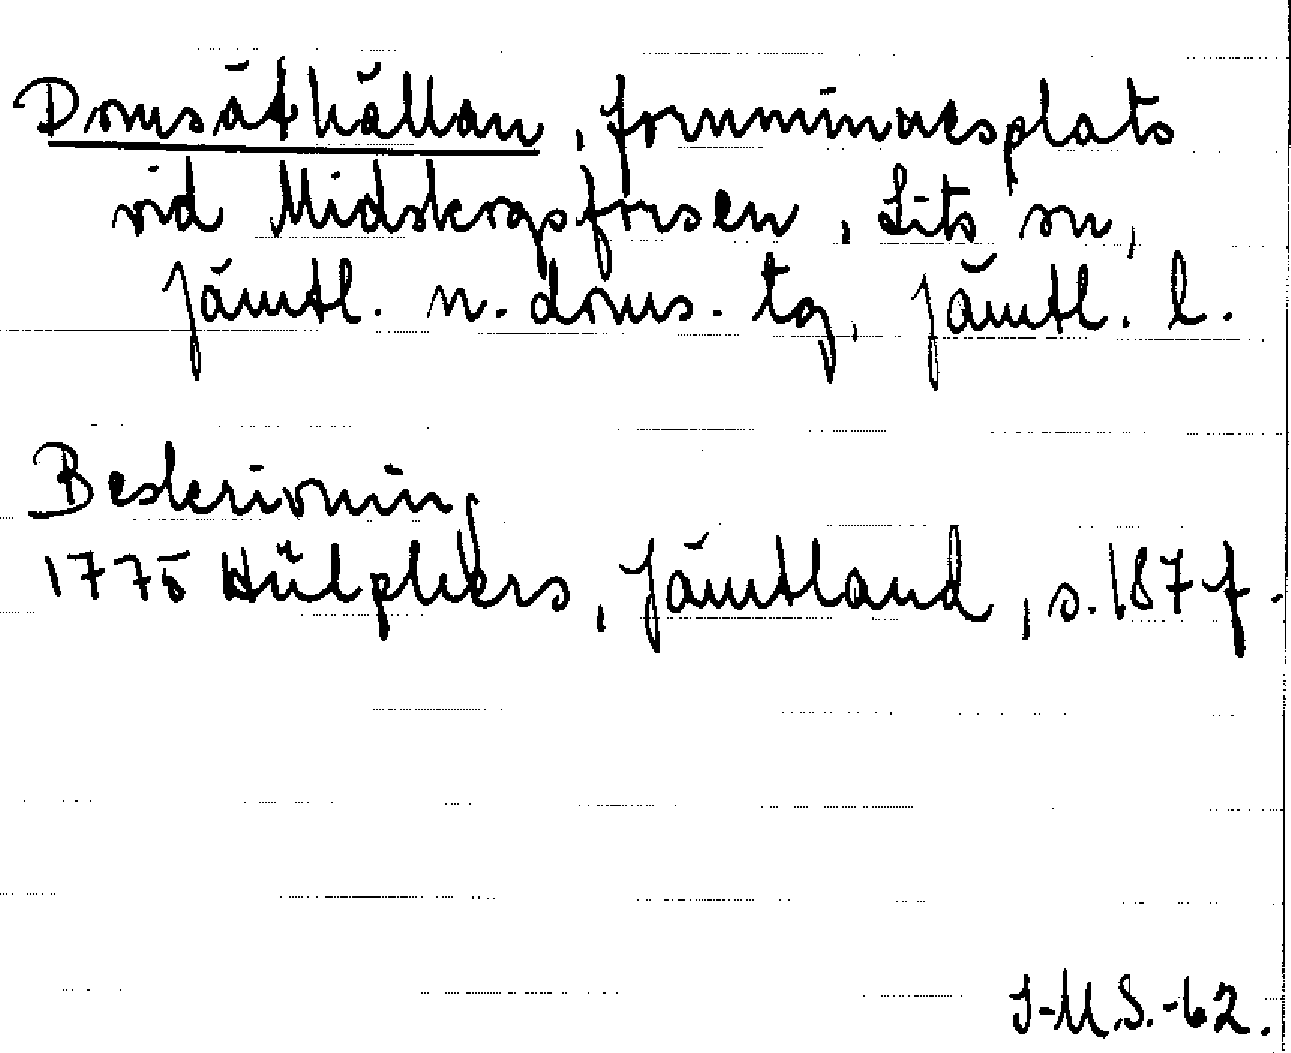 Domsäthällan, fornminnesplats
vid Midskogsforsen, Lits sn,
Jämtl. n. doms. tg, Jämtl. l.
Beskrivning
1775 Hülphers, Jämtland, s. 187 f.
I-M.S.-62.